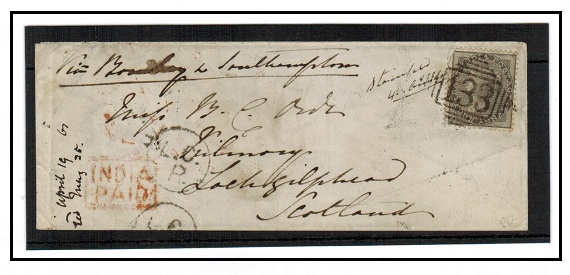 Via Bombay & Southampton
Stamped
Miss B. C. Orde
Kilmory
Lochgilphead
Scotland
INDIA
PAID
April 19 61
May 25.
133
P